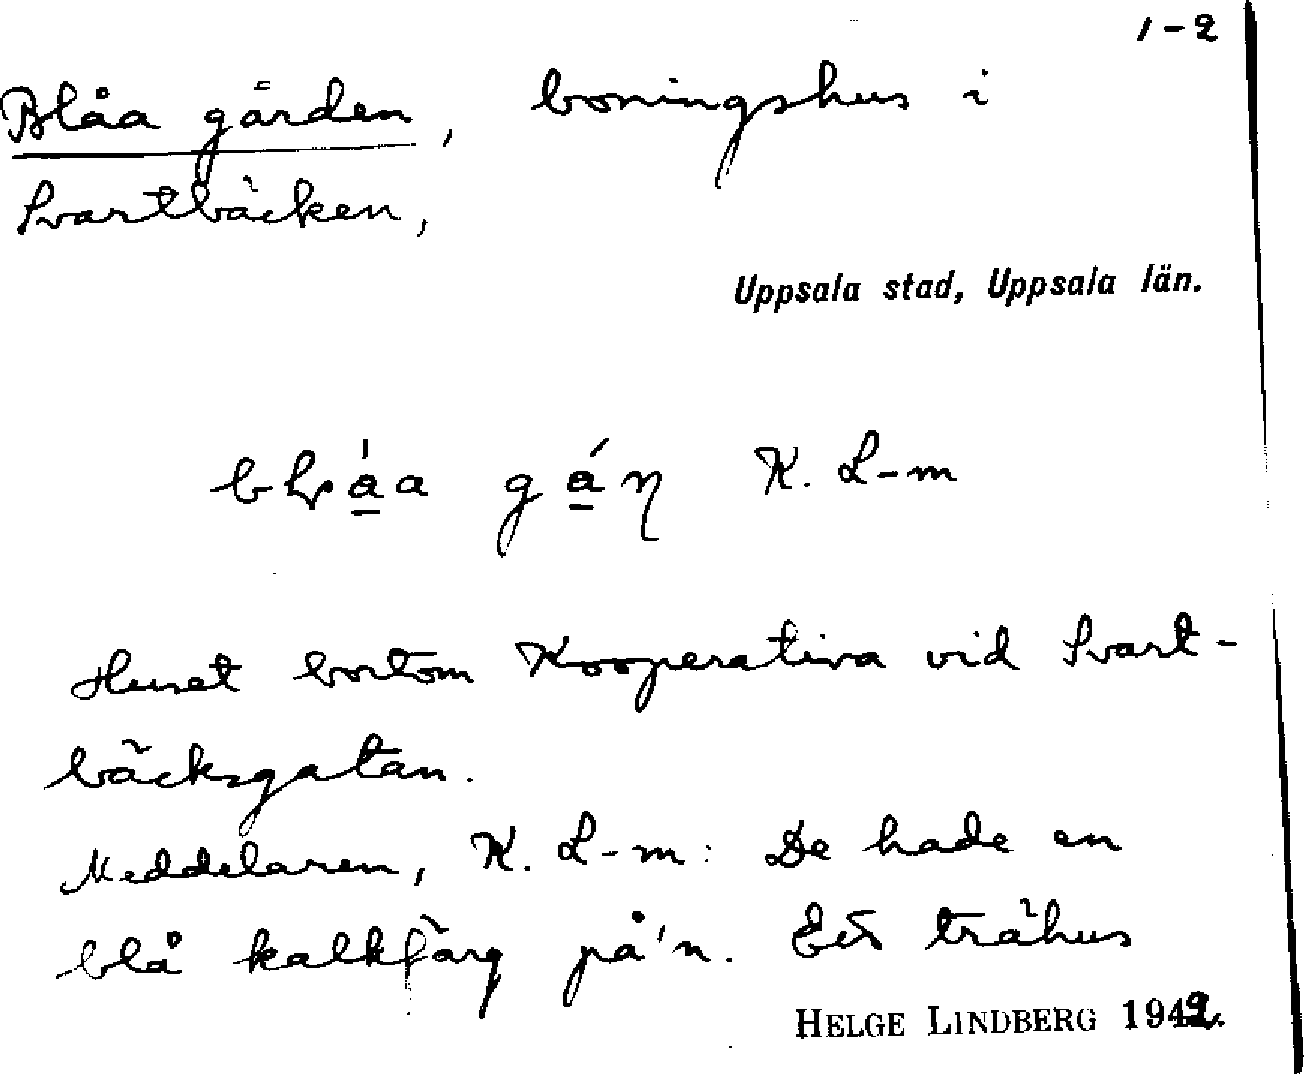 1-2
Blåa gården, boningshus i
Svartbäcken,
Uppsala stad, Uppsala län.
K. L-m
Huset bortom Kooperativa vid Svart-
bäcksgatan.
Meddelaren, K. L-m: De hade en
blå kalkfärg på'n. Ett trähus
HELGE LINDBERG 1942.